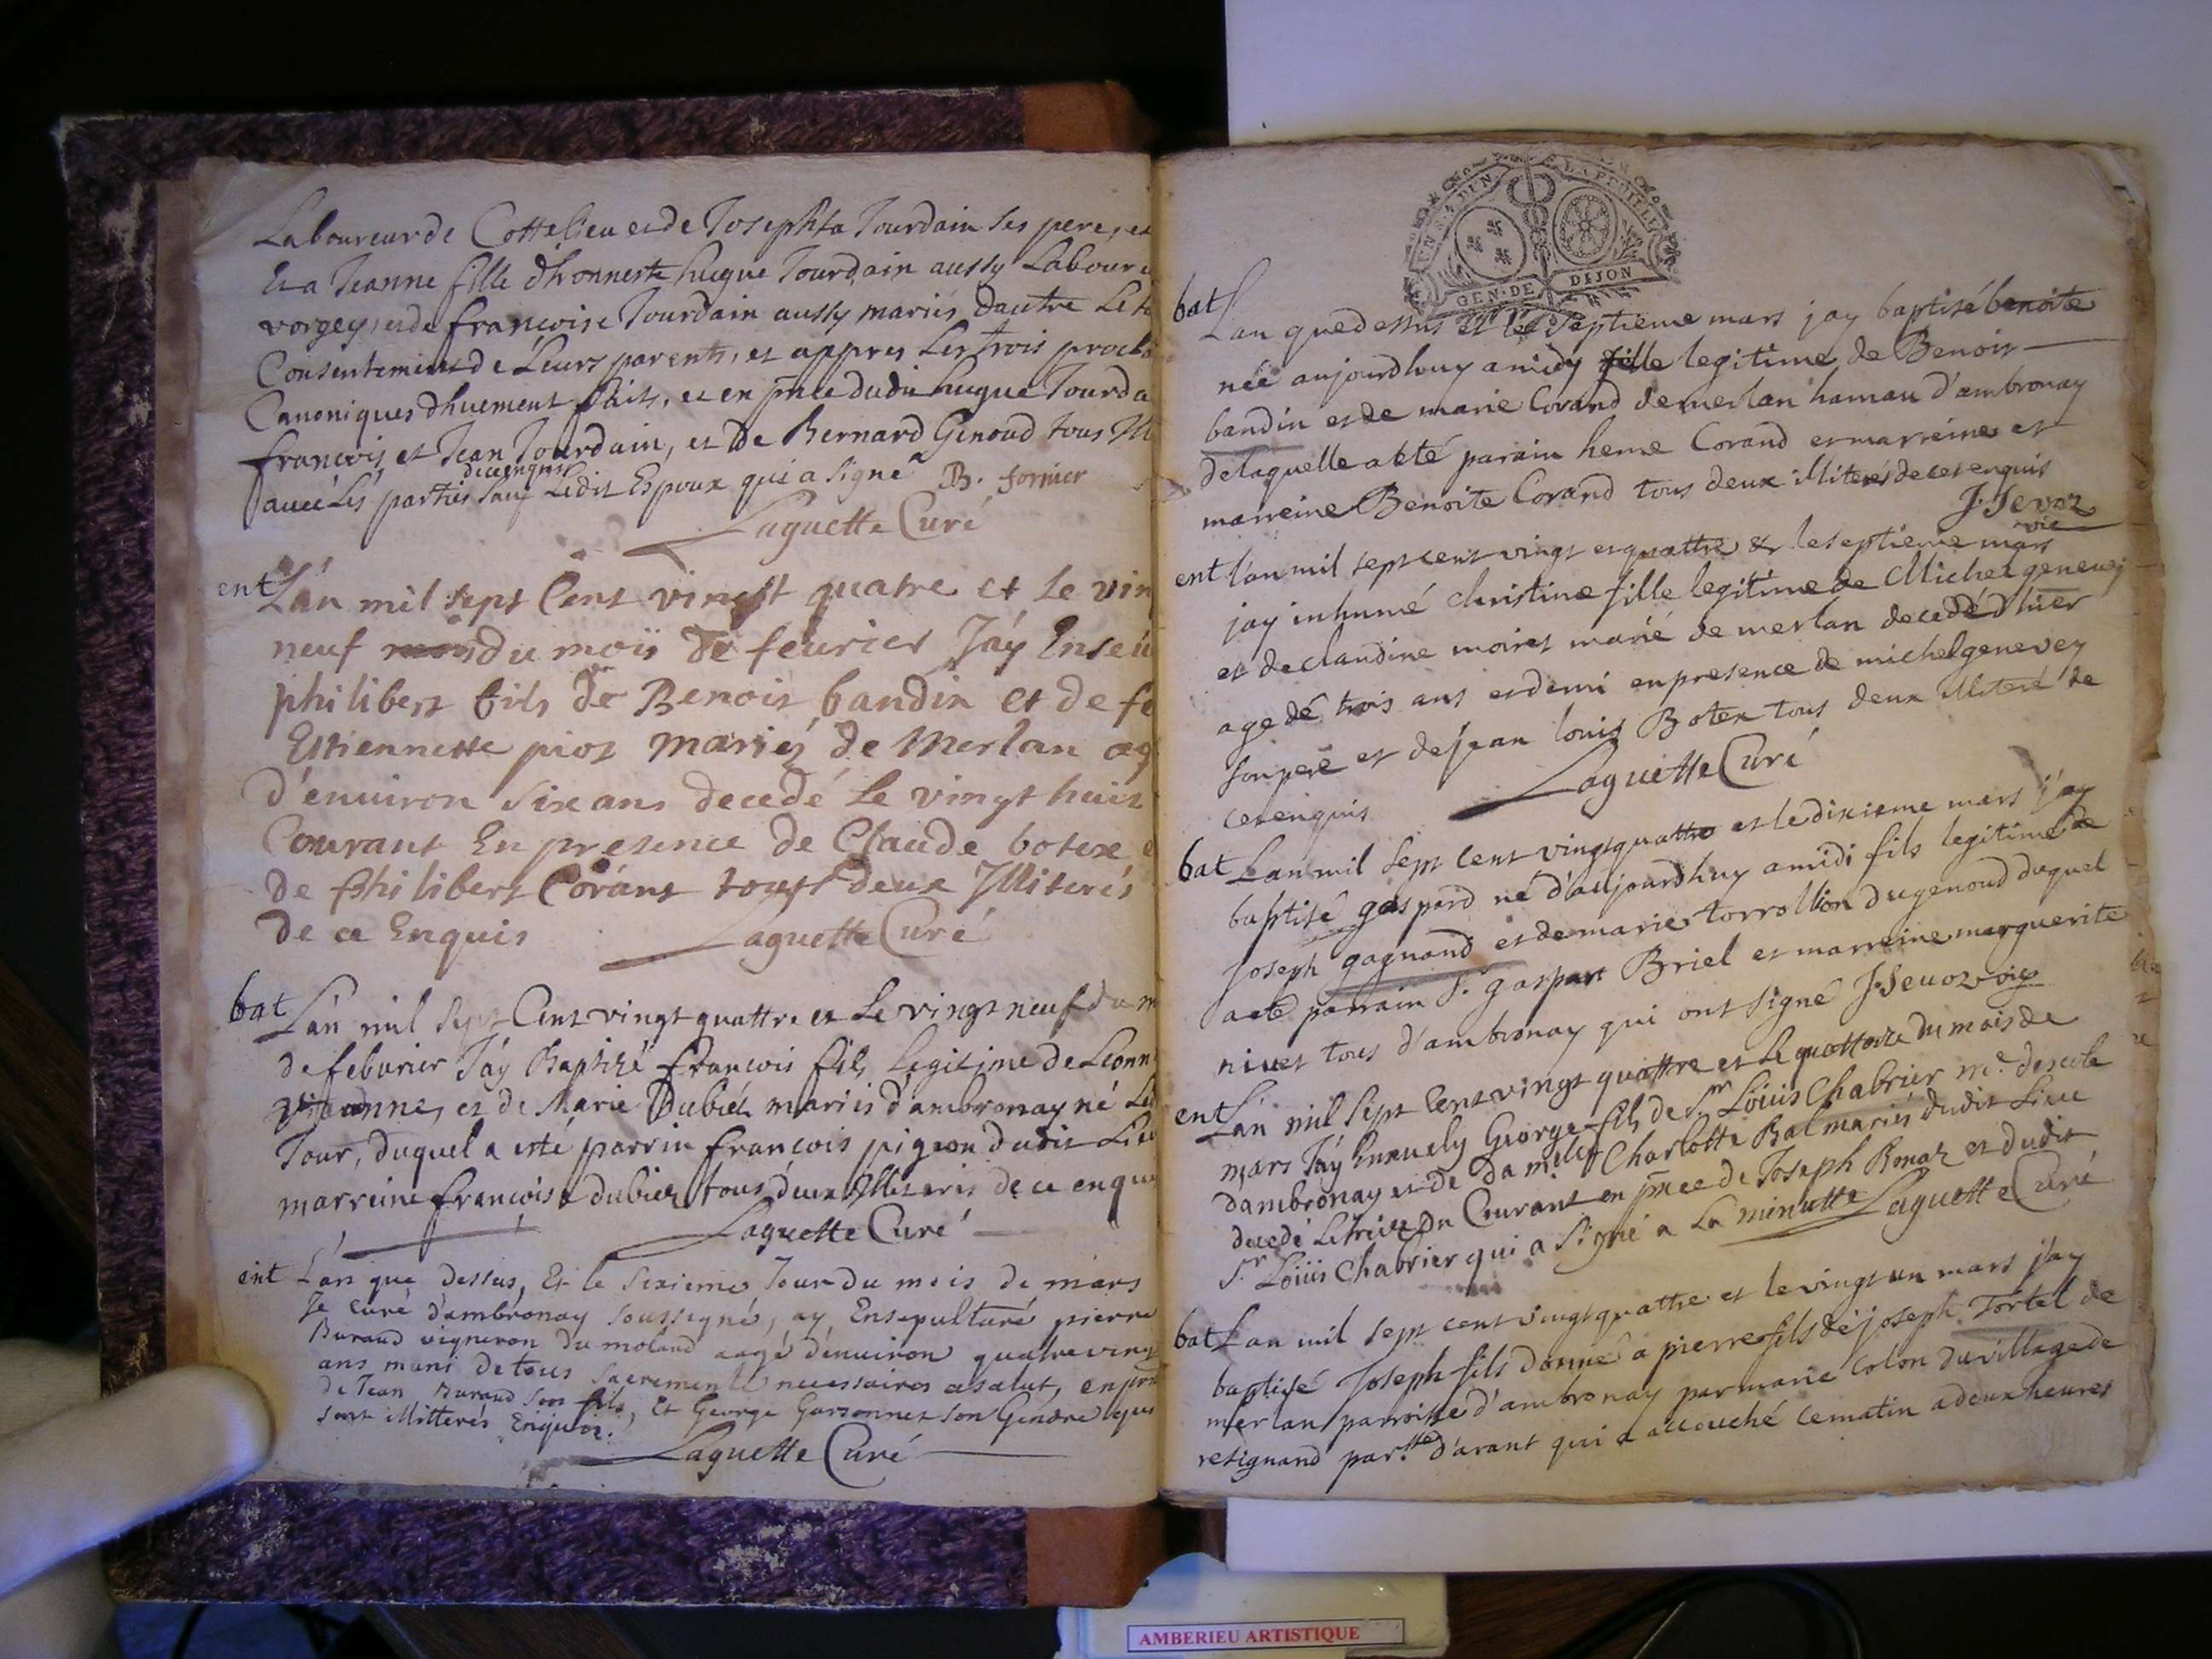 Laboureur de Cottelieu et de Josephta Jourdain ses pere, et
Et a Jeanne fille d'honneste hugue Jourdain aussy Labour
vorgey, et de francoise Jourdain aussy mariés d'autre Le
Consentement de Leurs parents, et appres Les trois procla
Canoniques dhuement faits, et en pnce dudit hugue Jourda
francois et Jean Jourdain, et De Bernard Genoud tous
de ce enquis
avec Les parties sauf Ledit Espoux qui a signé B. fornier
Laguette Curé
ent L'án mil sept Cent vingt quatre et Le vin
neuf du mois de feurier Jáy Enseu
philibert fils de Benoit bandin et de fe
Estiennette piot mariés de Merlan ag
d'enuiron six ans decedé Le vingt huit
Courant En presence de Claude botex e
de philibert Corant tous deux Illiterés
de ce Enquis Laguette Curé
bat L'án mil sept Cent vingt quattre et Le vingt neuf du m
de feburier Jáy Baptizé francois fils Legitime de Leonn
et de Marie Dubiez mariés d'ambronay né Le
Jour, duquel a esté parrin francois pigeon dudit Lieu
marreine francoise dubiez tous deux Illiteris de ce enqui
Laguette Curé
ent L'an que dessus, Et le Sixieme Jour du mois de mars
Je curé d'ambronay soussigné, ay Ensepulturé pierre
Burand vigneron du moland aagé d'enuiron quatre vingt
ans muni de tous Sacrements necessaires a salut, en pre
de Jean Burand son fils, Et George Garsonnet son Gendre lequ
sont illitterés Enquis.
Laguette Curé
UN S. 4 DEN. LA FEUILLE
GEN. DE DIJON
bat L'an que dessus et le septieme mars jay baptisé benoite
née aujourdhuy a midy fille legitime de Benoit
bandin et de marie Corand de merlan hamau d'ambronay
de laquelle a été parain heme Corand et marreine et
marreine Benoite Corand tous deux illiterés de ce enquis
J. Jevoz
vic
ent l'an mil sept cent vingt et quattre & le septieme mars
jay inhumé christine fille legitime de Michel genevey
et de claudine moiret marié de merlan decedé d'hier
age dé trois ans et demi en presence de michel genevey
son pere et de jean louis Botex tous deux illiteré de
ce enquis Laguette Curé
bat L'an mil sept cent vingt quattre et le dixieme mars j'ay
baptisé gaspard né d'aujourdhuy a midi fils legitime de
joseph gagnand et de marie torrollion du genoud duquel
a eté parrain Sr. gaspart Briel et marreine marguerite
nivet tous d'ambronay qui ont signé J. Jevoz vic
ent L'án mil sept Cent vingt quattre et Le quattorze du mois de
mars Jáy Enseuely George fils de Sr Loüis Chabrier me. d'escole
d'ambronay et de damelle Charlotte Bal mariés dudit Lieu
decedé Le treize du Courant en pnce de Joseph Bonaz et dudit
Sr Loüis Chabrier qui a signé a La minutte Laguette Curé
bat L'an mil sept cent vingt quattre et le vingt un mars j'ay
baptisé Joseph fils donné a pierre fils de joseph Tortel de
merlan parroisse d'ambronay par marie colon du village de
resignand parsse d'arant qui a accouché ce matin a deux heures
AMBERIEU ARTISTIQUE